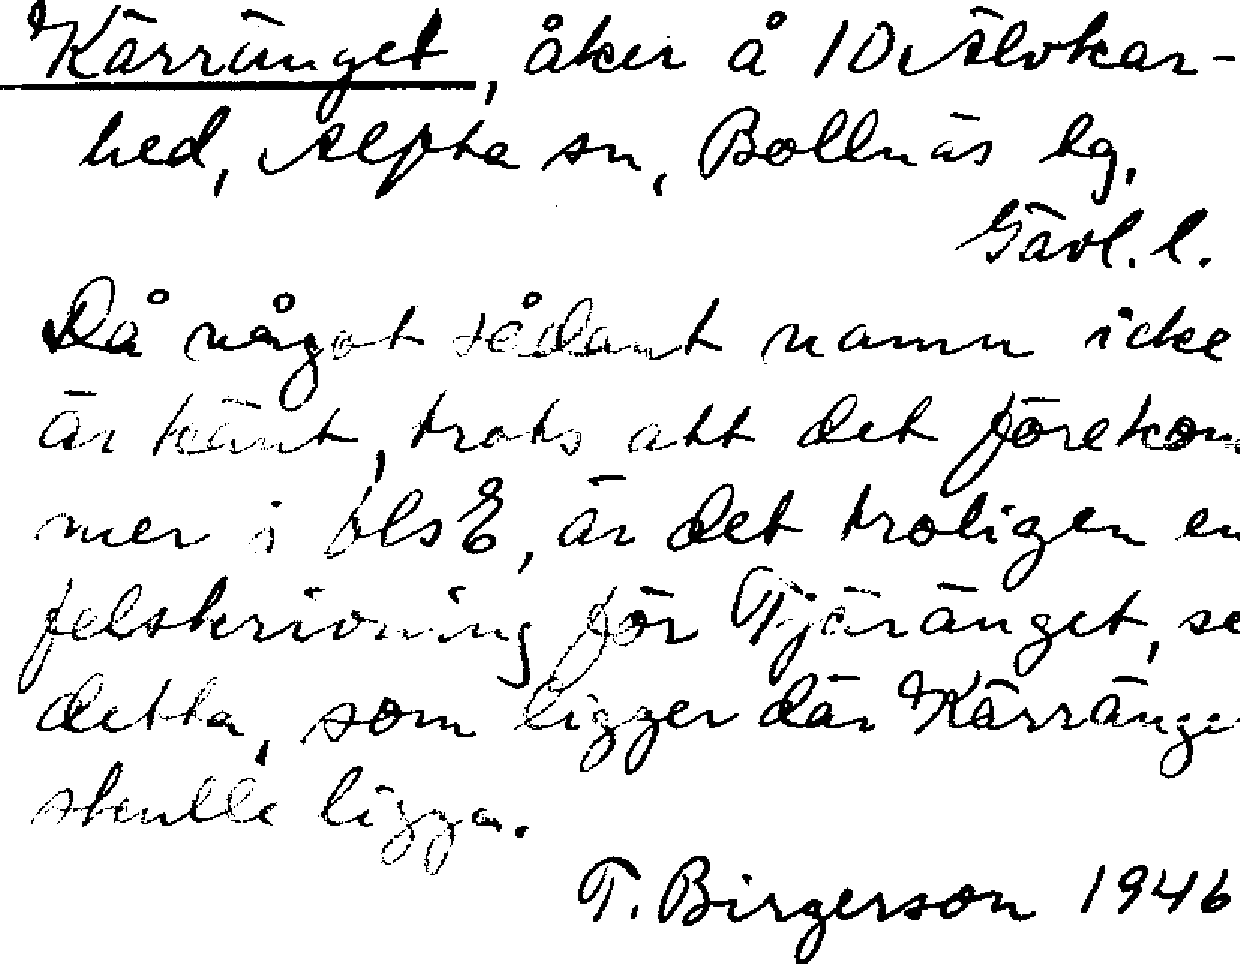 Kärränget, åker å 10 Älvkar-
hed, Alfta sn, Bollnäs hg,
Gävl. l.
Då något sådant namn icke
är känt, trots att det förekom
mer i bls E, är det troligen en
felskrivning för Tjäränget, se
detta, som ligger där Kärränge
skulle ligga.
T. Birgerson 1946